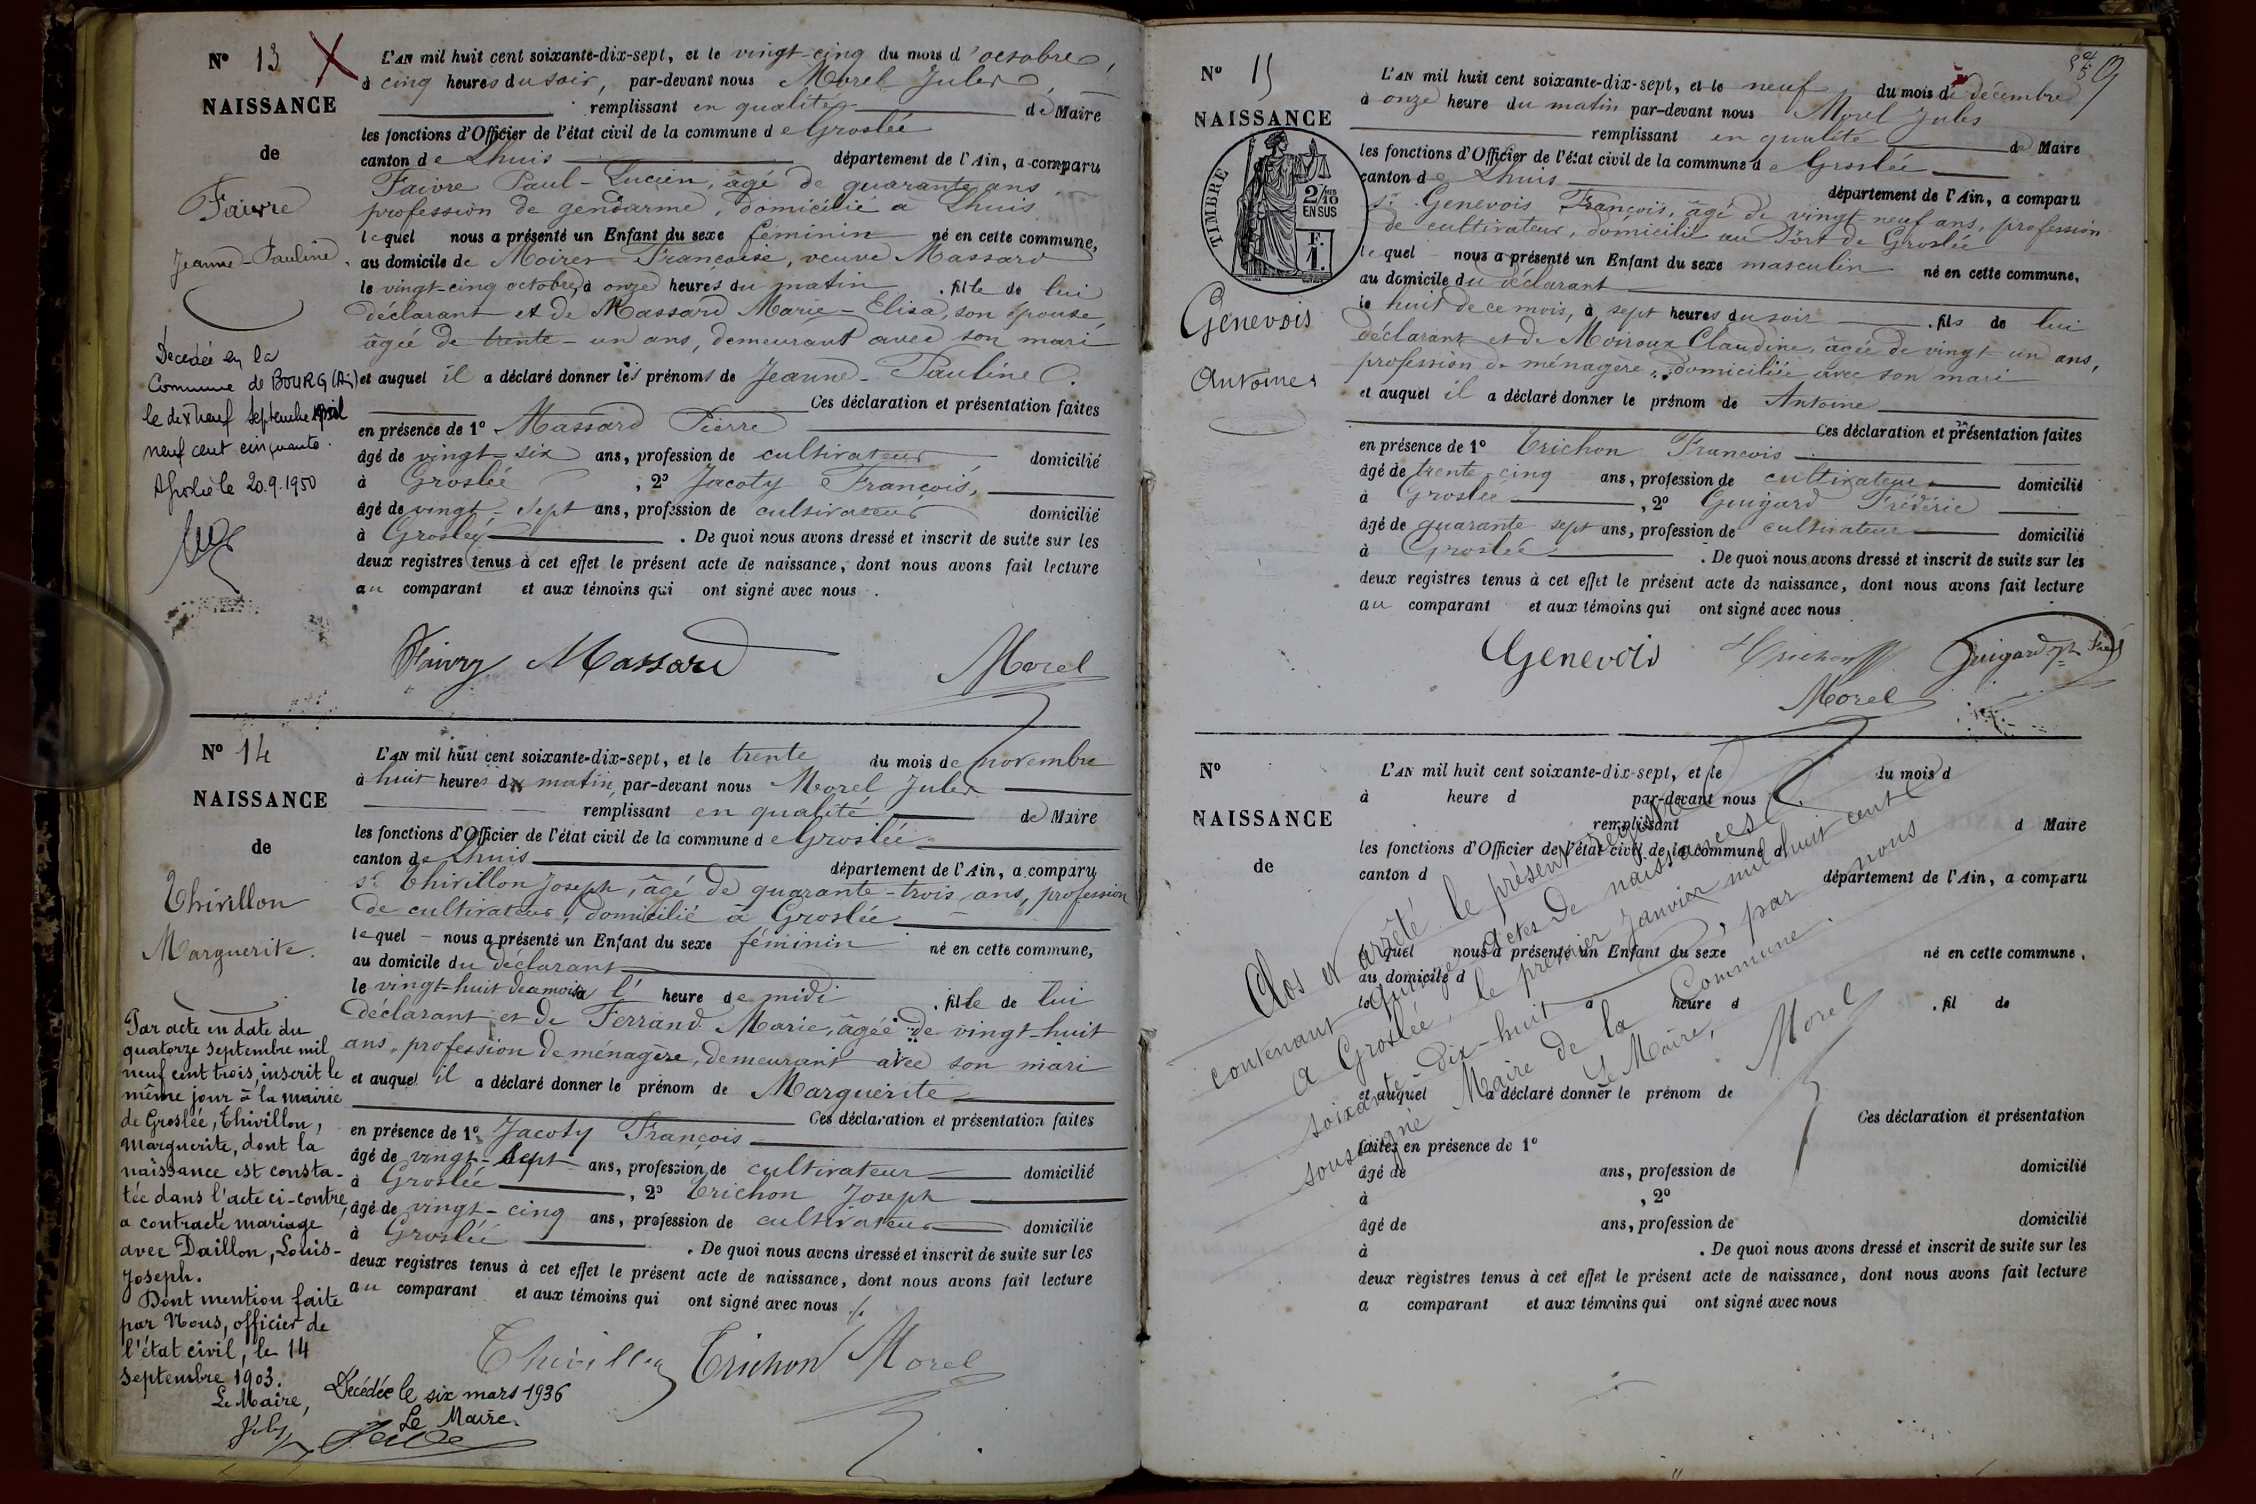 N° 13
NAISSANCE
de
Faivre
Jeanne-Pauline.
Décédée en la
Commune de BOURG (Ain)
le dix neuf septembre mil
neuf cent cinquante.
le 20.9.1950
L'AN mil huit cent soixante-dix-sept, et le vingt-cinq du mois d'octobre,
à cinq heures du soir, par-devant nous Morel Jules
remplissant en qualité de Maire
les fonctions d'Officier de l'état civil de la commune de Groslée
canton de Lhuis département de l'Ain, a comparu
Faivre Paul-Lucien, âgé de quarante ans
profession de gendarme, domicilié à Lhuis
lequel nous a présenté un Enfant du sexe féminin né en cette commune,
au domicile de Moirer Françoise, veuve Massard
le vingt-cinq octobre à onze heures du matin, fille de lui
déclarant et de Massard Marie-Elisa, son épouse,
âgée de trente-un ans, demeurant avec son mari
et auquel il a déclaré donner les prénoms de Jeanne-Pauline.
Ces déclaration et présentation faites
en présence de 1° Massard Pierre
âgé de vingt-six ans, profession de cultivateur domicilié
à Groslée, 2° Jacoty François,
âgé de vingt-sept ans, profession de cultivateur domicilié
à Groslée. De quoi nous avons dressé et inscrit de suite sur les
deux registres tenus à cet effet le présent acte de naissance, dont nous avons fait lecture
au comparant et aux témoins qui ont signé avec nous.
Faivre Massard Morel
N° 14
NAISSANCE
de
Thivillon
Marguerite.
Par acte en date du
quatorze septembre mil
neuf cent trois, inscrit le
même jour à la mairie
de Groslée, Thivillon,
Marguerite, dont la
naissance est consta-
tée dans l'acte ci-contre,
a contracté mariage
avec Daillon, Louis-
Joseph.
Dont mention faite
par Nous, officier de
l'état civil, le 14
septembre 1903.
Le Maire,
L'AN mil huit cent soixante-dix-sept, et le trente du mois de novembre
à huit heures du matin, par-devant nous Morel Jules
remplissant en qualité de Maire
les fonctions d'Officier de l'état civil de la commune de Groslée
canton de Lhuis département de l'Ain, a comparu
sr Thivillon Joseph, âgé de quarante-trois ans, profession
de cultivateur, domicilié à Groslée
lequel nous a présenté un Enfant du sexe féminin né en cette commune,
au domicile du déclarant
le vingt-huit de ce mois à l' heure de midi, fille de lui
déclarant et de Ferrand Marie, âgée de vingt-huit
ans, profession de ménagère, demeurant avec son mari
et auquel il a déclaré donner le prénom de Marguerite
Ces déclaration et présentation faites
en présence de 1° Jacoty François
âgé de vingt-sept ans, profession de cultivateur domicilié
à Groslée, 2° Trichon Joseph
âgé de vingt-cinq ans, profession de cultivateur domicilié
à Groslée. De quoi nous avons dressé et inscrit de suite sur les
deux registres tenus à cet effet le présent acte de naissance, dont nous avons fait lecture
au comparant et aux témoins qui ont signé avec nous
Thivillon Trichon Morel
Décédée le six mars 1936
Le Maire.
9
N° 15
NAISSANCE
TIMBRE
2/10
EN SUS
F.
1.
Genevois
Antoine.
L'AN mil huit cent soixante-dix-sept, et le neuf du mois de décembre
à onze heure du matin par-devant nous Morel Jules
remplissant en qualité de Maire
les fonctions d'Officier de l'état civil de la commune de Groslée
canton de Lhuis département de l'Ain, a comparu
sr Genevois François, âgé de vingt-neuf ans, profession
de cultivateur, domicilié au Port de Groslée
lequel nous a présenté un Enfant du sexe masculin né en cette commune,
au domicile du déclarant
le huit de ce mois, à sept heures du soir, fils de lui
déclarant et de Moiroux Claudine, âgée de vingt-un ans,
profession de ménagère, domiciliée avec son mari
et auquel il a déclaré donner le prénom de Antoine
Ces déclaration et présentation faites
en présence de 1° Trichon François
âgé de trente-cinq ans, profession de cultivateur domicilié
à Groslée, 2° Guigard Frédéric
âgé de quarante sept ans, profession de cultivateur domicilié
à Groslée. De quoi nous avons dressé et inscrit de suite sur les
deux registres tenus à cet effet le présent acte de naissance, dont nous avons fait lecture
au comparant et aux témoins qui ont signé avec nous
Genevois Trichon Guigard
Morel
N°
NAISSANCE
de
L'AN mil huit cent soixante-dix-sept, et le du mois d
à heure d par-devant nous
remplissant d Maire
les fonctions d'Officier de l'état civil de la commune d
canton d département de l'Ain, a comparu
lequel nous a présenté un Enfant du sexe né en cette commune,
au domicile d
le à heure d, fil de
et auquel a déclaré donner le prénom de
Ces déclaration et présentation
faites en présence de 1°
âgé de ans, profession de domicilié
à , 2°
âgé de ans, profession de domicilié
à . De quoi nous avons dressé et inscrit de suite sur les
deux registres tenus à cet effet le présent acte de naissance, dont nous avons fait lecture
a comparant et aux témoins qui ont signé avec nous
Clos et arrêté le présent registre
contenant quinze actes de naissances
a Groslée, le premier Janvier mil huit cent
soixante dix-huit, par nous
soussigné Maire de la Commune.
Le Maire,
Morel